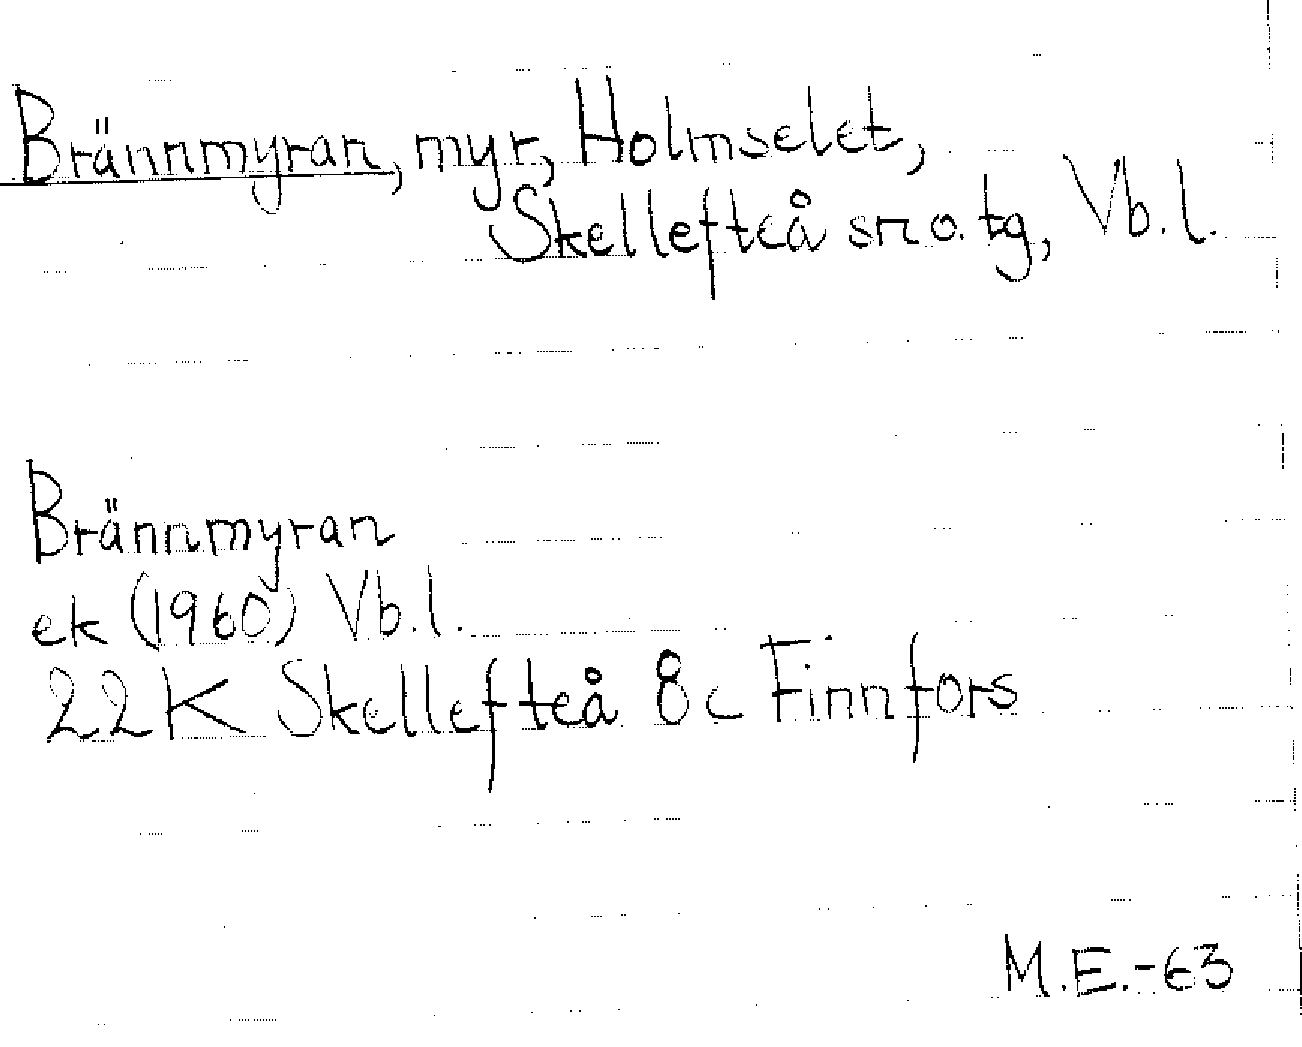 Brännmyran, myr, Holmselet,
Skellefteå sn o. tg, Vb. l.
Brännmyran
ek (1960) Vb. l.
22K Skellefteå 8c Finnfors
M.E.-63